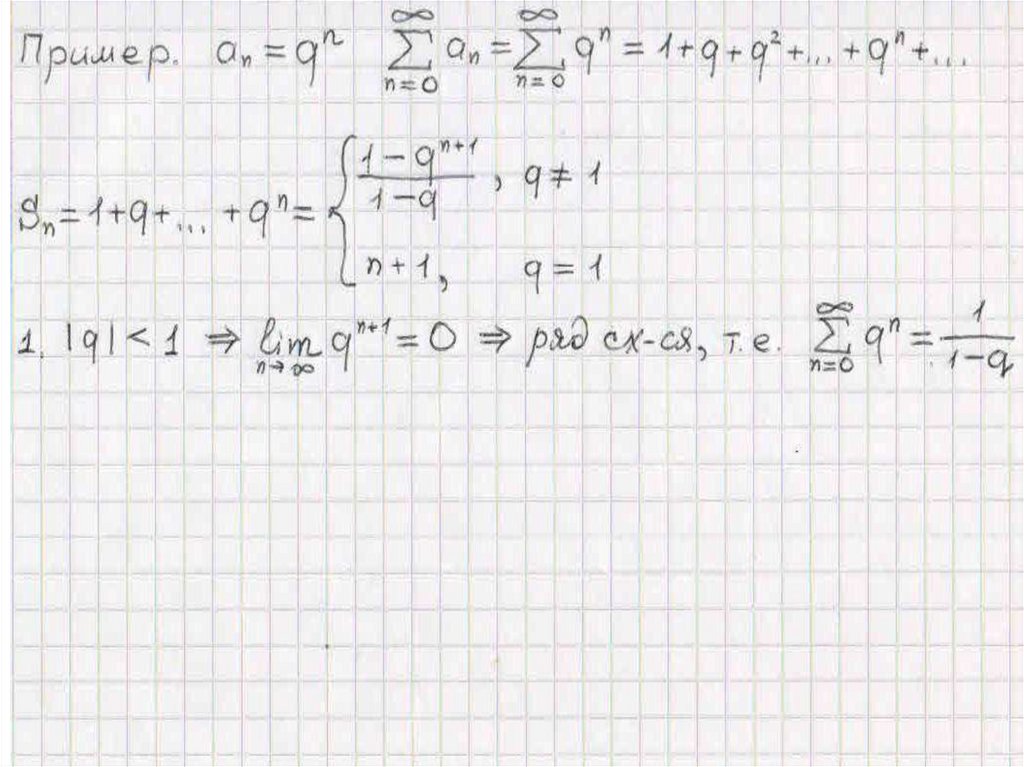 Пример. aₙ = qⁿ ∑_{n=0}^{∞} aₙ = ∑_{n=0}^{∞} qⁿ = 1 + q + q² + ... + qⁿ + ...
Sₙ = 1 + q + ... + qⁿ = { (1 − qⁿ⁺¹)/(1 − q), q ≠ 1
n + 1, q = 1
1. |q| < 1 ⇒ lim_{n→∞} qⁿ⁺¹ = 0 ⇒ ряд сх-ся, т.е. ∑_{n=0}^{∞} qⁿ = 1/(1 − q)